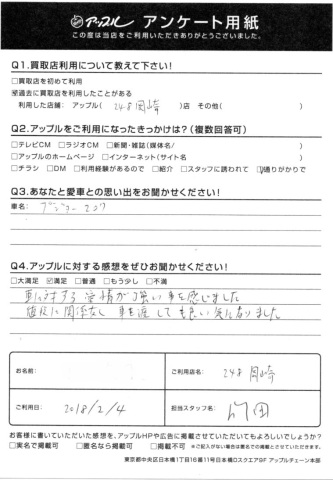 アップル アンケート用紙
この度は当店をご利用いただきありがとうございました。
Q1.買取店利用について教えて下さい！
□買取店を初めて利用
☑過去に買取店を利用したことがある
利用した店舗: アップル( 248岡崎 )店 その他( )
Q2.アップルをご利用になったきっかけは？(複数回答可)
□テレビCM □ラジオCM □新聞・雑誌(媒体名/ )
□アップルのホームページ □インターネット(サイト名 )
□チラシ □DM □利用経験があるので □紹介 □スタッフに誘われて ☑通りがかりで
Q3.あなたと愛車との思い出をお聞かせください！
車名: プジョー207
Q4.アップルに対する感想をぜひお聞かせください！
□大満足 ☑満足 □普通 □もう少し □不満
車に対する愛情が強い事を感じました
値段に関係なし 車を渡しても良い気になりました
お名前:
ご利用店名: 248岡崎
ご利用日: 2018/2/4
担当スタッフ名: 竹田
お客様に書いていただいた感想を、アップルHPや広告に掲載させていただいてもよろしいでしょうか？
□実名で掲載可 □匿名なら掲載可 □掲載不可 ※ご記入がない場合は匿名とさせていただきます。
東京都中央区日本橋1丁目16番11号日本橋Dスクエア9F アップルチェーン本部